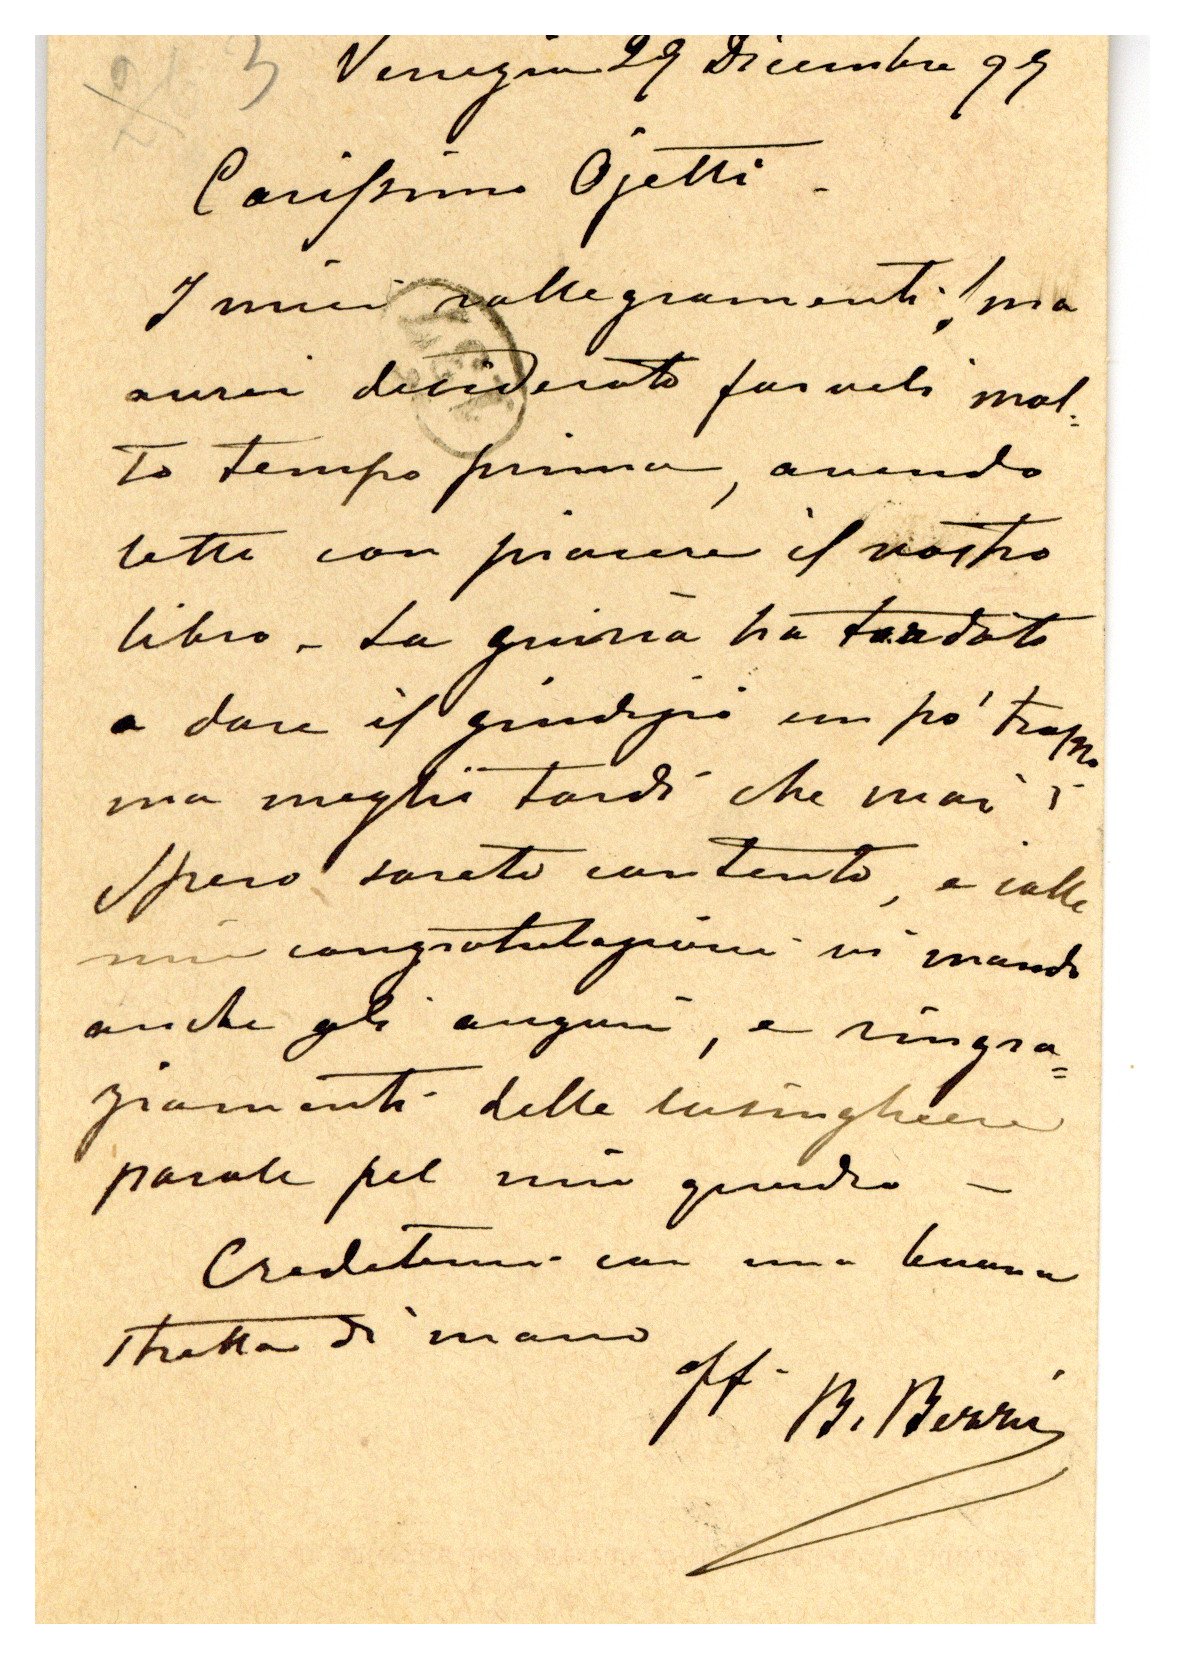 3 Venezia 29 Dicembre 99
Carissimo Ojetti -
I miei rallegramenti! ma
avrei desiderato farveli mol=
to tempo prima, avendo
letto con piacere il vostro
libro - La giuria ha tardato
a dare il giudizio un po' troppo
ma meglio tardi che mai
Spero sarete contento, e colle
mie congratulazioni vi mando
anche gli auguri, e ringra=
ziamenti delle lusinghiere
parole pel mio quadro -
Credetemi con una buona
stretta di mano
aff.
B. Bezzi